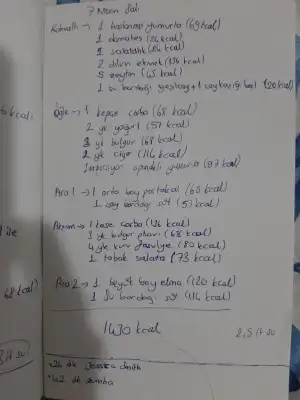 7 Nisan Salı
Kahvaltı → 1 haşlanmış yumurta (69 kcal)
1 domates (26 kcal)
1 salatalık (16 kcal)
2 dilim ekmek (136 kcal)
5 zeytin (45 kcal)
1 su bardağı yeşilçay + 1 çay kaşığı bal (20 kcal)
Öğle → 1 kepçe çorba (68 kcal)
2 yk yoğurt (57 kcal)
3 yk bulgur (68 kcal)
2 yk ciğer (116 kcal)
1 porsiyon ıspanaklı yumurta (87 kcal)
Ara 1 → 1 orta boy portakal (60 kcal)
1 çay bardağı süt (51 kcal)
Akşam → 1 kase çorba (126 kcal)
3 yk bulgur pilavı (68 kcal)
4 yk kuru fasulye (80 kcal)
1 tabak salata (73 kcal)
Ara 2 → 1 büyük boy elma (120 kcal)
1 su bardağı süt (114 kcal)
1430 kcal
2,5 lt su
dk Jessica Smith
dk zumba